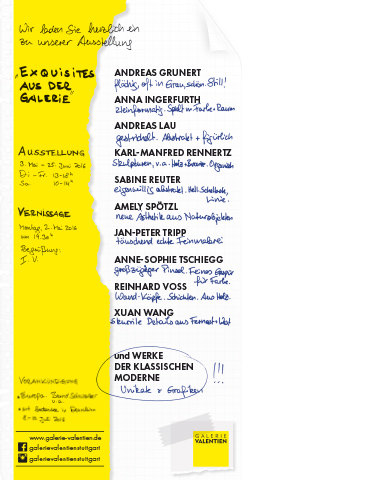 Wir laden Sie herzlich ein
zu unserer Ausstellung
„EXQUISITES
AUS DER
GALERIE“
AUSSTELLUNG
3. Mai – 25. Juni 2016
Di – Fr. 13–18h
Sa. 10–14h
VERNISSAGE
Montag, 2. Mai 2016
um 19.30h
Begrüßung:
I. V.
ANDREAS GRUNERT
flächig, oft in Grau, schön. Still!
ANNA INGERFURTH
kleinformatig. Spiel m. Farbe + Raum
ANDREAS LAU
gestrichelt. Abstrakt + figürlich
KARL-MANFRED RENNERTZ
Skulpturen, v.a. Holz + Bronze. Organisch
SABINE REUTER
eigenwillig abstrakt. Hell. Schelllack,
Linie.
AMELY SPÖTZL
neue Ästhetik aus Naturobjekten
JAN-PETER TRIPP
täuschend echte Feinmalerei
ANNE-SOPHIE TSCHIEGG
großzügiger Pinsel. Feines Gespür
für Farbe.
REINHARD VOSS
Wand-Köpfe. Schichten. Aus Holz.
XUAN WANG
skurrile Details aus Fernost + West
und WERKE
DER KLASSISCHEN
MODERNE
Unikate + Grafiken
!!!
VORANKÜNDIGUNG
www.galerie-valentien.de
galerievalentienstuttgart
galerievalentienstuttgart
GALERIE
VALENTIEN